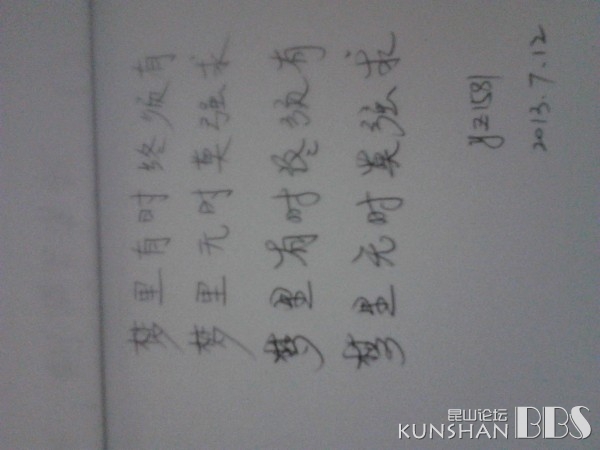 梦里有时终须有
梦里无时莫强求
梦里有时终须有
梦里无时莫强求
yz1581
2013.7.12
昆山论坛
KUNSHAN BBS